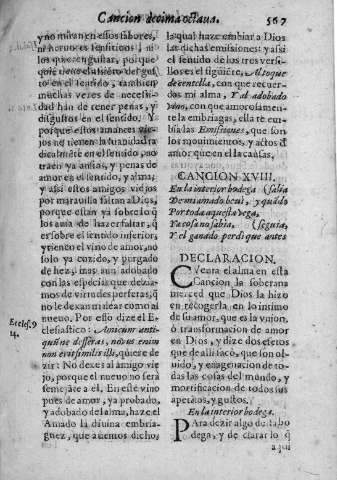 Cancion decima octaua.
567
y no miran en essos sabores,
ni heruores sensitiuos; ni
los quieren gustar, porque
quiē tiene el assiēto del gus
to en el sentido, tambien
muchas vezes de necessi-
dad hàn de tener penas, y
disgustos en el sentido. Y
porque estos amantes vie-
jos no tienen la suauidad ra
dicalmēte en el sentido, no
traen ya ansias, y penas de
amor en el sentido, y alma;
y assi estos amigos viejos
por marauilla faltan a Dios,
porque estàn ya sobre lo q̃
los auia de hazer faltar, q̃
es sobre el sentido inferior,
y tienen el vino de amor, no
solo ya cozido, y purgado
de hez, mas aun adobado
con las especias que dezia-
mos de virtudes perfetas, q̃
no le dexan malear como al
nueuo. Por esso dize el Ec-
clesiastico: Amicum anti-
quū ne desseras, nouus enim
non erit similis illi, quiere de
zir: No dexes al amigo vie
jo, porque el nueuo no serà
semejāte a el. En este vino
pues de amor, ya probado,
y adobado del alma, haze el
Amado la diuina embria-
guez, que auemos dicho,
Ecclesi. 9
14.
la qual haze embiar a Dios
las dichas emissiones: y assi
el sentido de los tres versi-
llos es el siguiēte, Al toque
de centella, con que recuer-
das mi alma, Y al adobado
vino, con que amorosamen-
te la embriagas, ella te en-
bia las Emissiones, que son
los mouimientos, y actos d̄
amor que en ella causas.
CANCION XVIII.
En la interior bodega (sabia
De mi amado beui, y quādo
Por toda aquesta vega,
Ya cosa no sabia, (seguia,
Y el ganado perdi que antes
DECLARACION.
CVenta el alma en esta
Cancion la soberana
merced que Dios la hizo
en recogerla en lo intimo
de su amor, que es la vnion,
ò transformacion de amor
en Dios, y dize dos efetos
que de alli sacò, que son ol-
uido, y enagenacion de to-
das las cosas del mundo, y
mortificacion de todos sus
apetitos, y gustos.
En la interior bodega.
PAra dezir algo desta bo
dega, y declarar lo q̃